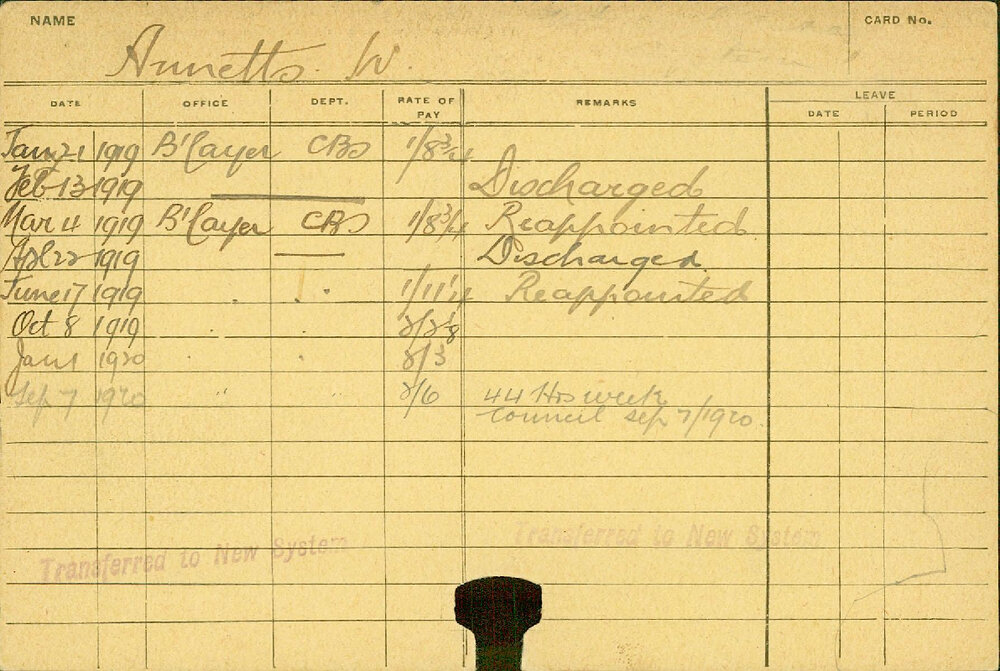 NAME CARD No.
Annetts. W.
DATE OFFICE DEPT. RATE OF PAY REMARKS LEAVE
DATE PERIOD
Jany 21 1919 B'layer CBS 1/8 3/4
Feb 13 1919 Discharged
Mar 4 1919 B'layer CBS 1/8 3/4 Reappointed
Apl 22 1919 Discharged
June 17 1919 " " 1/11 1/4 Reappointed
Oct 8 1919 " " 2/2 1/8
Jan 1 1920 " " 2/3
Sep 7 1920 " " 2/6 44 Hrs week
Council Sep 7/1920.
Transferred to New System
Transferred to New System